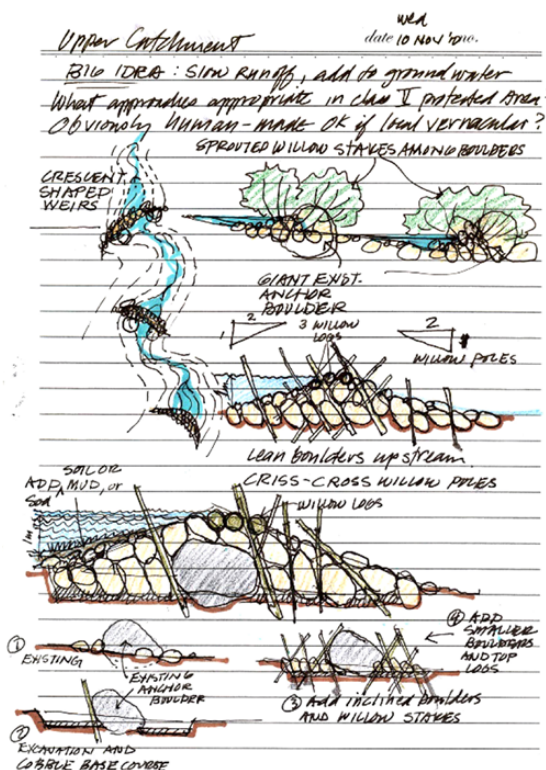 Wed
Upper Catchment
date 10 NOV '10 no.
BIG IDEA: Slow runoff, add to ground water
What approaches appropriate in class V protected Area
Obviously human-made OK if local vernacular?
SPROUTED WILLOW STAKES AMONG BOULDERS
CRESCENT
SHAPED
WEIRS
GIANT EXIST.
ANCHOR
BOULDER
2
1
3 WILLOW
LOGS
2
WILLOW POLES
lean boulders upstream.
CRISS-CROSS WILLOW POLES
SOIL OR
ADD, MUD, or
Sod
WILLOW LOGS
1
EXISTING
EXISTING
ANCHOR
BOULDER
4 ADD
SMALLER
BOULDERS
AND TOP
LOGS
3 Add inclined boulders
AND WILLOW STAKES
2
EXCAVATION AND
COBBLE BASE COURSE